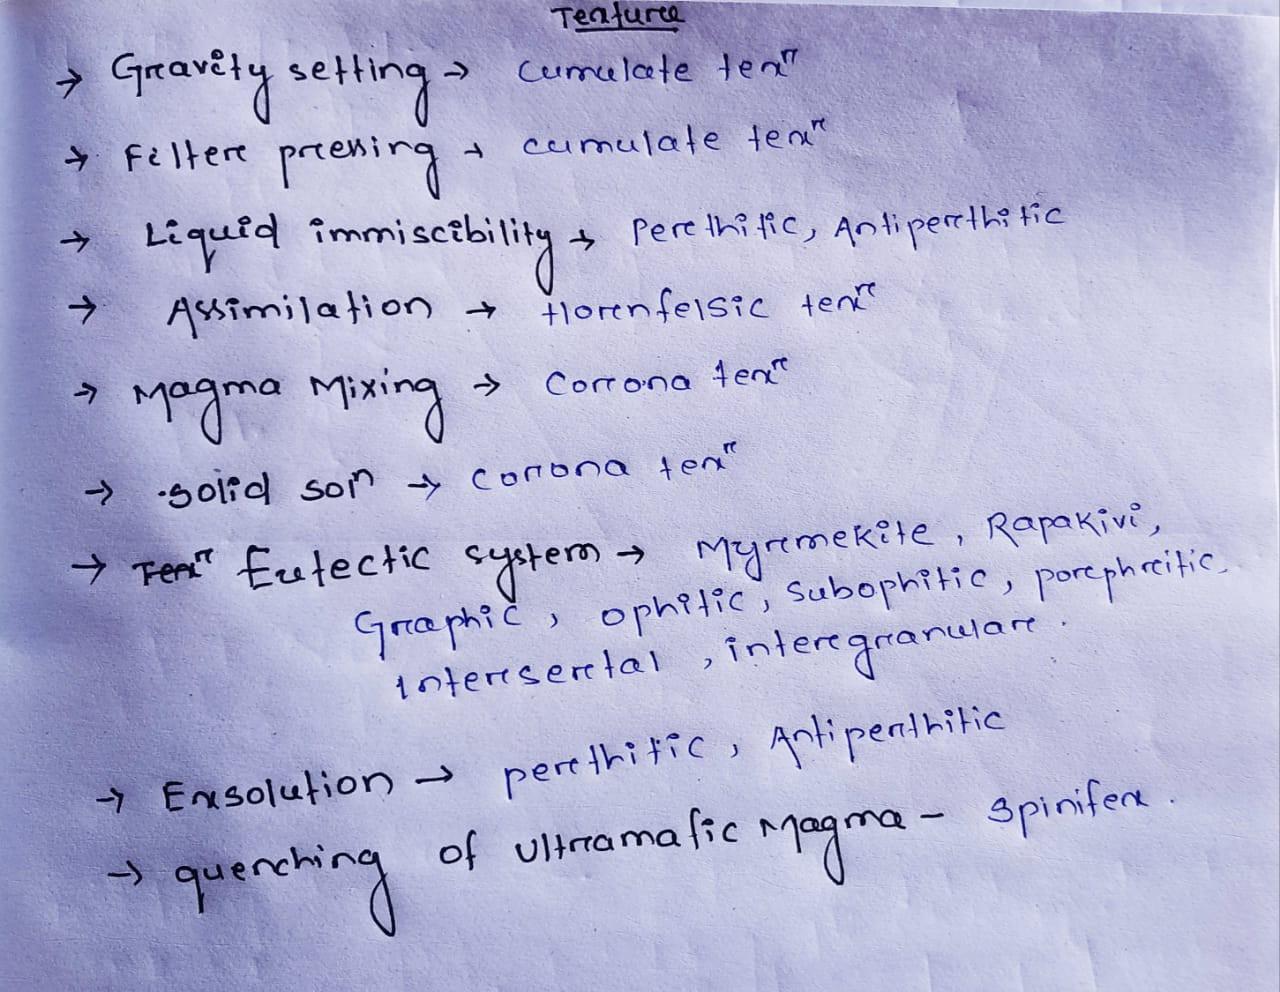 Texture
→ Gravity setting → cumulate texr
→ Filter pressing → cumulate texr
→ Liquid immiscibility → Perthitic, Antiperthitic
→ Assimilation → Hornfelsic texr
→ Magma Mixing → Corrona texr
→ solid son → Corrona texr
→ Texr Eutectic system → Myrmekite, Rapakivi,
Graphic, ophitic, subophitic, porphritic,
intersertal, intergranular.
→ Exsolution → perthitic, Antiperthitic
→ quenching of ultramafic Magma - spinifex.